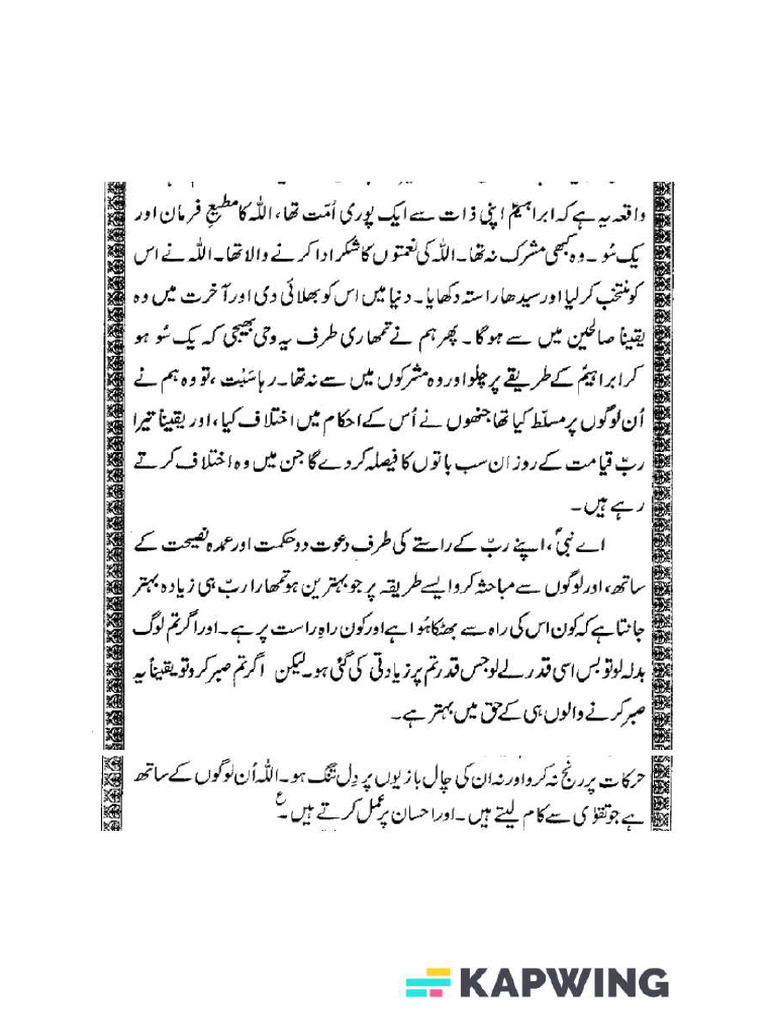 واقعہ یہ ہے کہ ابراہیمؑ اپنی ذات سے ایک پوری اُمّت تھا، اللہ کا مطیعِ فرمان اور
یک سُو۔ وہ کبھی مشرک نہ تھا۔ اللہ کی نعمتوں کا شکر ادا کرنے والا تھا۔ اللہ نے اس
کو منتخب کر لیا اور سیدھا راستہ دکھایا۔ دنیا میں اس کو بھلائی دی اور آخرت میں وہ
یقیناً صالحین میں سے ہوگا۔ پھر ہم نے تمھاری طرف یہ وحی بھیجی کہ یک سُو ہو
کر ابراہیمؑ کے طریقے پر چلو اور وہ مشرکوں میں سے نہ تھا۔ رہا سَبْت، تو وہ ہم نے
اُن لوگوں پر مسلّط کیا تھا جنھوں نے اُس کے احکام میں اختلاف کیا، اور یقیناً تیرا
ربّ قیامت کے روز ان سب باتوں کا فیصلہ کر دے گا جن میں وہ اختلاف کرتے
رہے ہیں۔
اے نبیؐ، اپنے ربّ کے راستے کی طرف دعوت دو حکمت اور عمدہ نصیحت کے
ساتھ، اور لوگوں سے مباحثہ کرو ایسے طریقہ پر جو بہترین ہو تمھارا ربّ ہی زیادہ بہتر
جانتا ہے کہ کون اس کی راہ سے بھٹکا ہُوا ہے اور کون راہِ راست پر ہے۔ اور اگر تم لوگ
بدلہ لو تو بس اسی قدر لے لو جس قدر تم پر زیادتی کی گئی ہو۔ لیکن اگر تم صبر کرو تو یقیناً یہ
صبر کرنے والوں ہی کے حق میں بہتر ہے۔
حرکات پر رنج نہ کرو اور نہ ان کی چال بازیوں پر دِل تنگ ہو۔ اللہ اُن لوگوں کے ساتھ
ہے جو تقوٰی سے کام لیتے ہیں۔ اور احسان پر عمل کرتے ہیں۔ ع
KAPWING